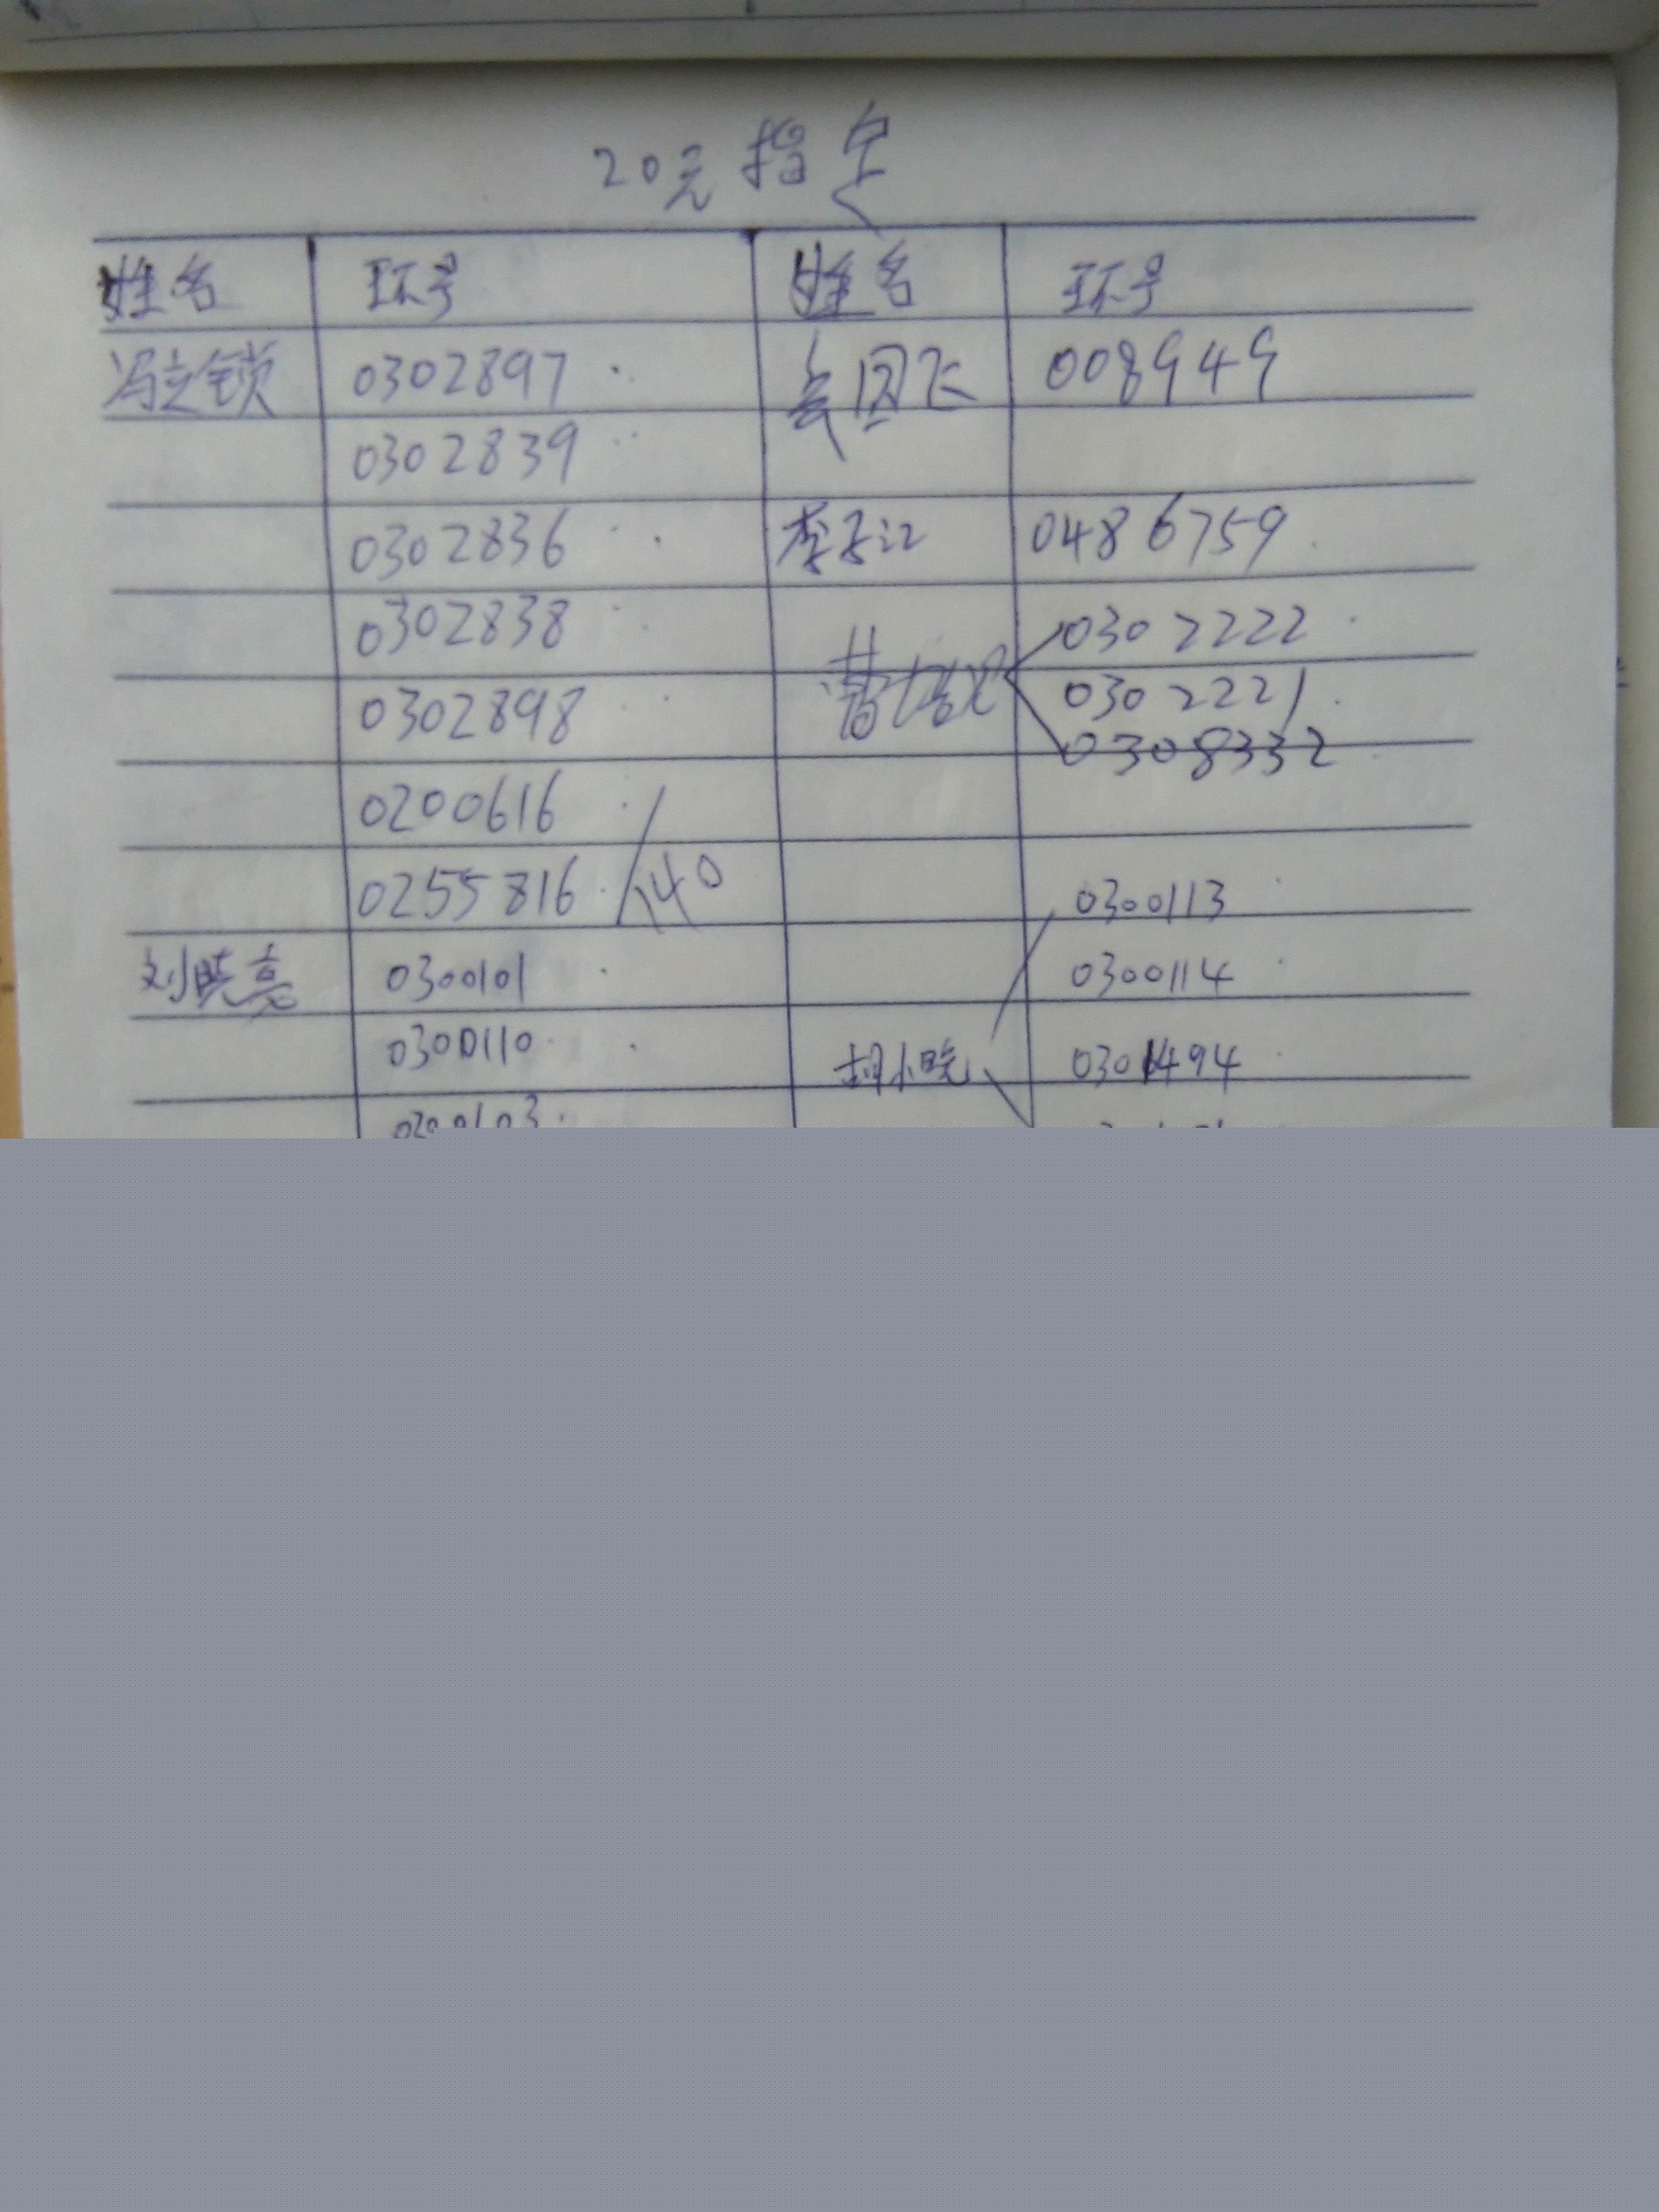 20元指定
姓名 环号 姓名 环号
冯立锁 0302897 国飞 008949
0302839
0302836 李子江 0486759
0302838 0302222
0302898 曹 0302221
0308332
0200616
0255816 140 0300113
刘晓亮 0300101 0300114
0300110 胡小晓 0301494
0300103